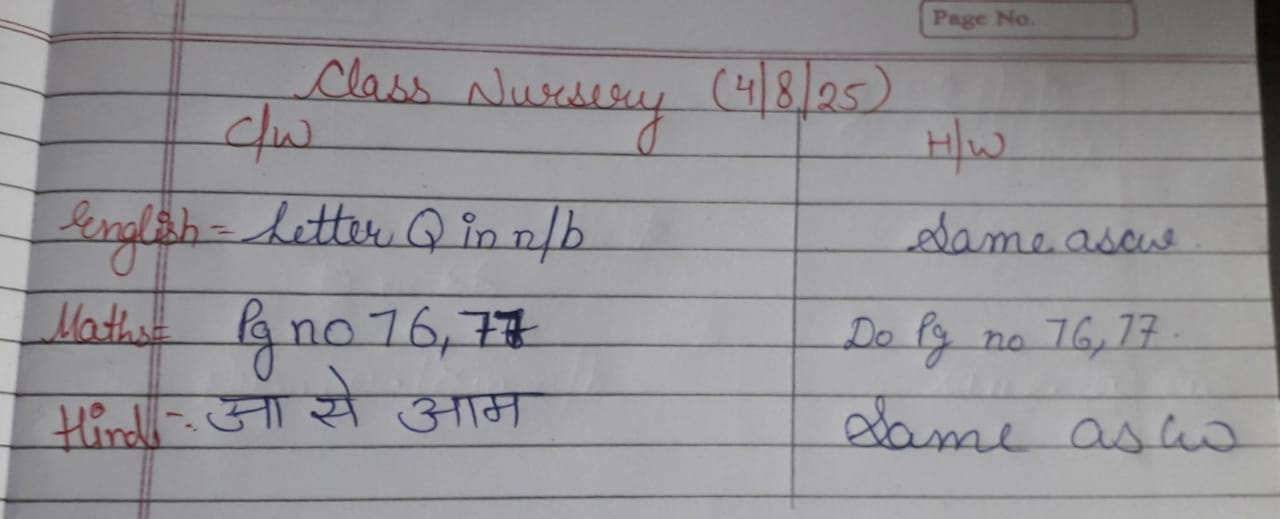 Page No.
Class Nursery (4/8/25)
C/W H/W
English = Letter Q in n/b Same as cw.
Maths = Pg no 76, 77 Do Pg no 76, 77.
Hindi - आ से आम Same as cw